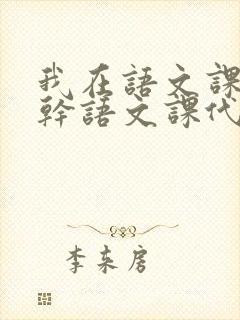 我在語文課
幹語文課代
李来房